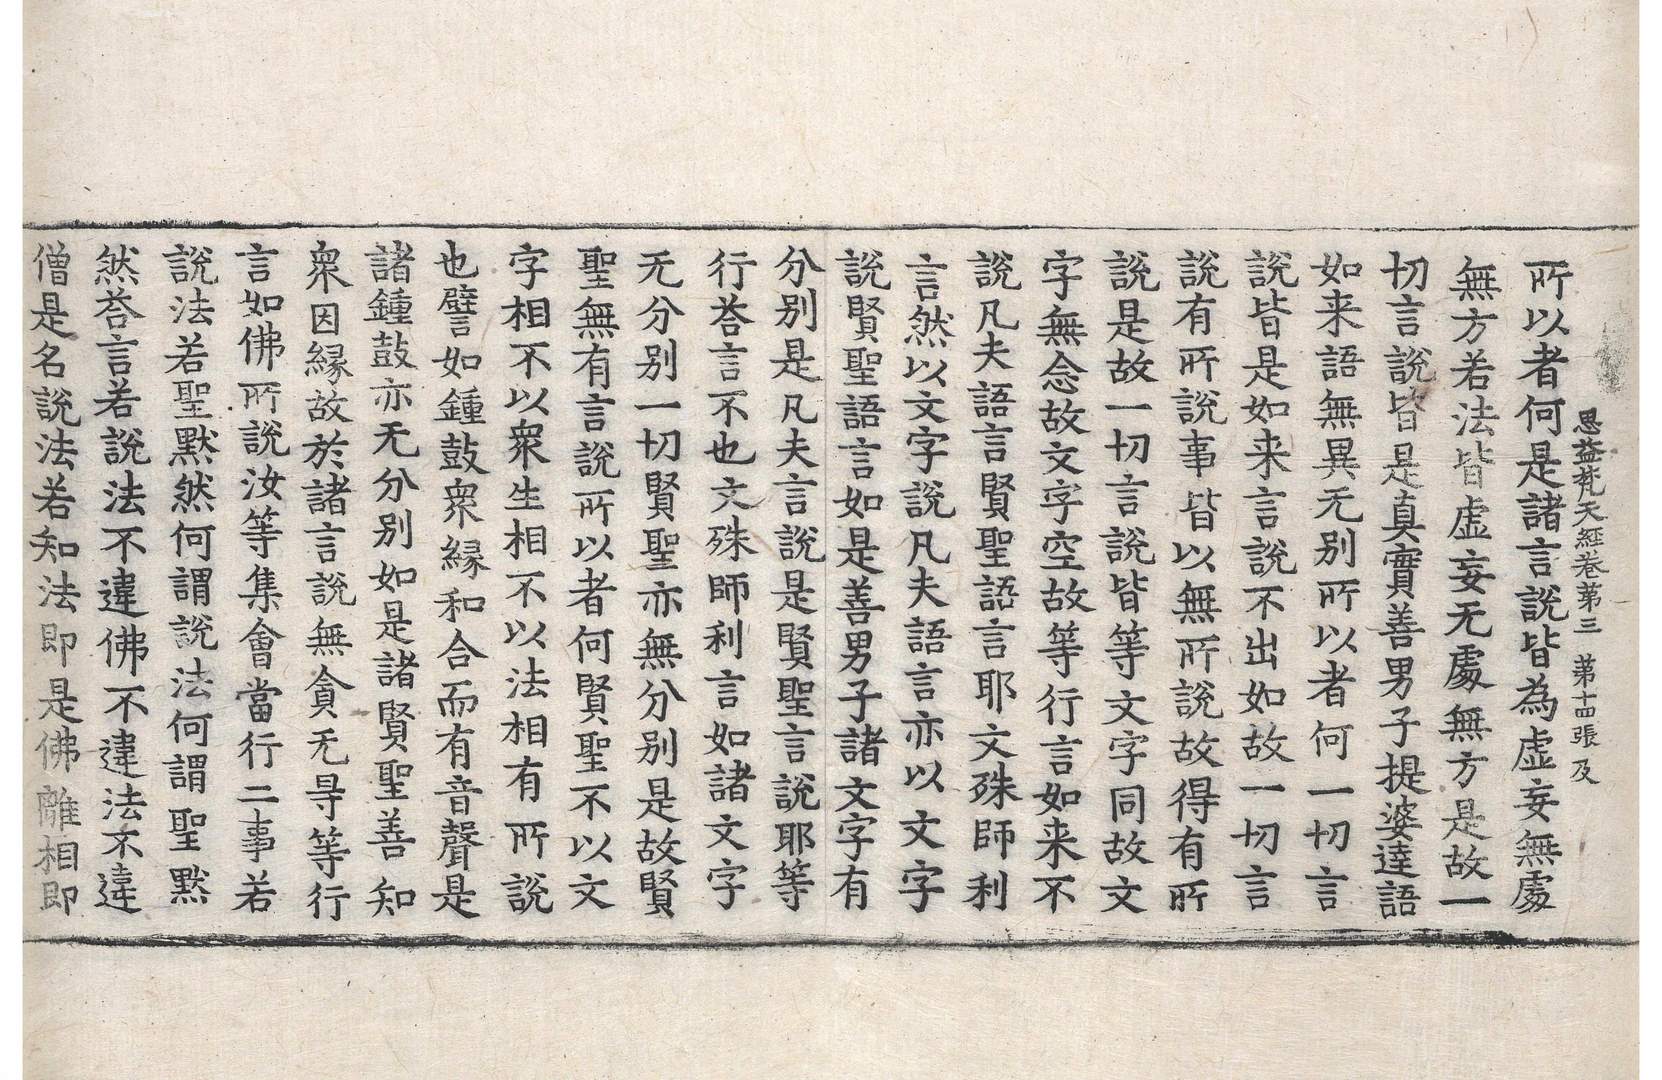 思益梵天經卷第三 第十四張 及
所以者何是諸言説皆為虛妄無處
無方若法皆虛妄无處無方是故一
切言説皆是真實善男子提婆達語
如来語無異无别所以者何一切言
説皆是如来言説不出如故一切言
説有所説事皆以無所説故得有所
説是故一切言説皆等文字同故文
字無念故文字空故等行言如来不
説凡夫語言賢聖語言耶文殊師利
言然以文字説凡夫語言亦以文字
説賢聖語言如是善男子諸文字有
分别是凡夫言説是賢聖言説耶等
行荅言不也文殊師利言如諸文字
无分别一切賢聖亦無分别是故賢
聖無有言説所以者何賢聖不以文
字相不以衆生相不以法相有所説
也譬如鍾鼓衆縁和合而有音聲是
諸鍾鼓亦无分别如是諸賢聖善知
衆因縁故於諸言説無貪无㝵等行
言如佛所説汝等集會當行二事若
説法若聖黙然何謂説法何謂聖黙
然荅言若説法不違佛不違法不違
僧是名説法若知法即是佛離相即